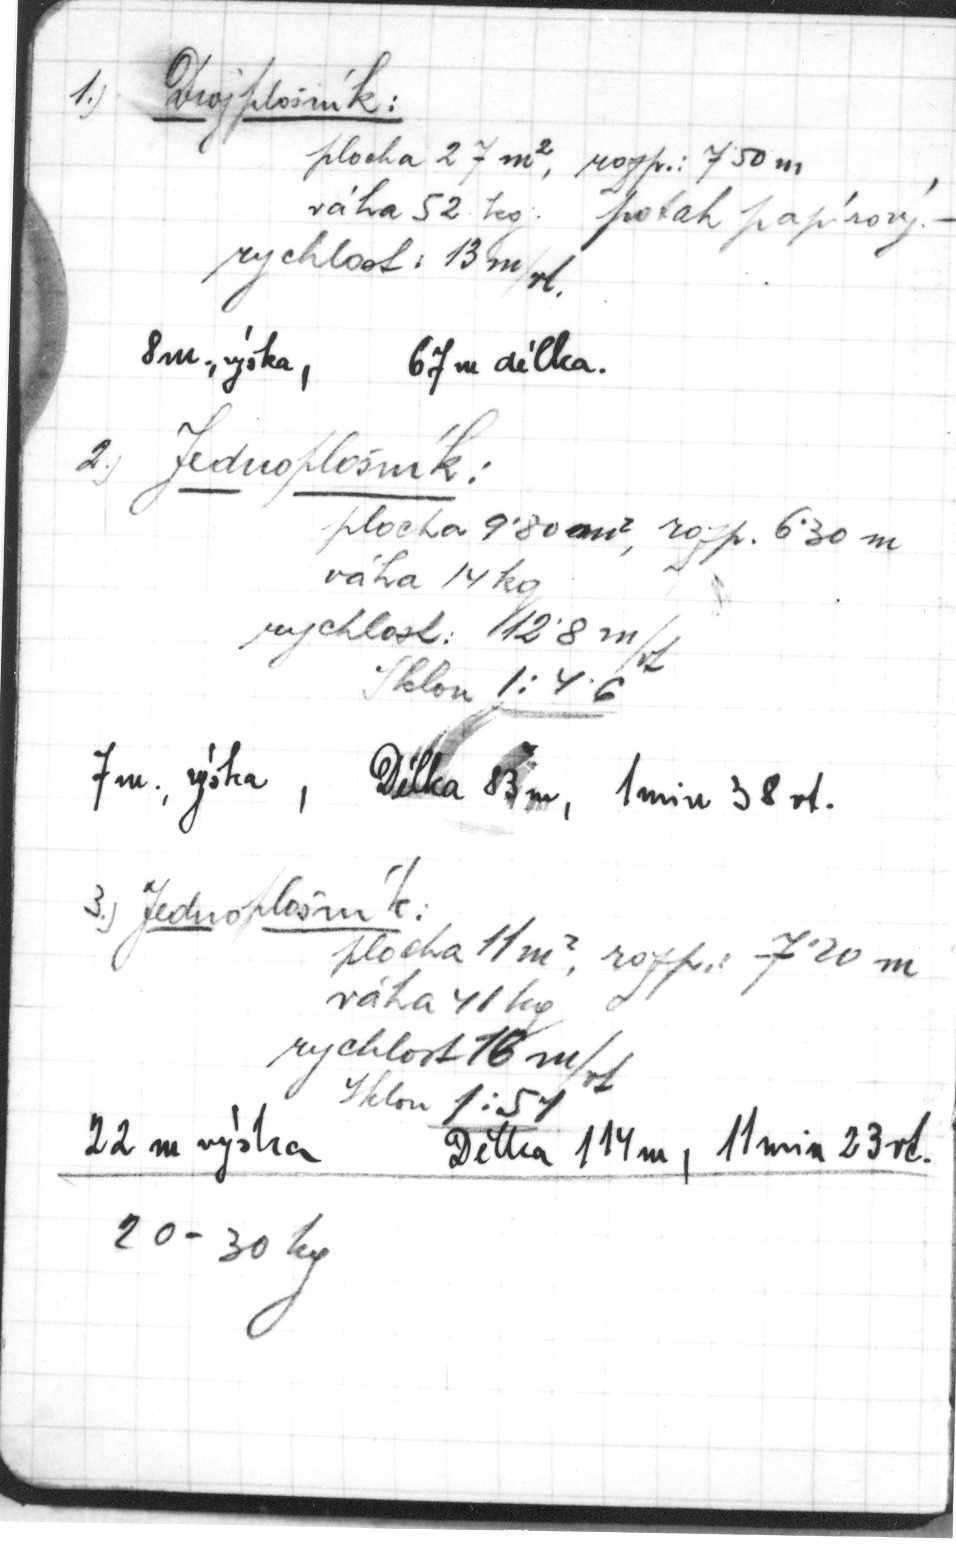 1.) Dvojplošník:
plocha 27 m², rozp.: 7˙50 m
váha 52 kg. potah papírový.-
rychlost: 13 m/vt.
8 m., výška, 67 m délka.
2.) Jednoplošník:
plocha 9˙80 m², rozp. 6˙30 m
váha 14 kg
rychlost: 12˙8 m/vt
Sklon 1:4˙6
7 m., výška, Délka 83 m, 1 min 38 vt.
3.) Jednoplošník:
plocha 11 m², rozp.: 7˙20 m
váha 41 kg
rychlost 16 m/vt
Sklon 1:51
22 m výška Délka 114 m, 11 min 23 vt.
20-30 kg